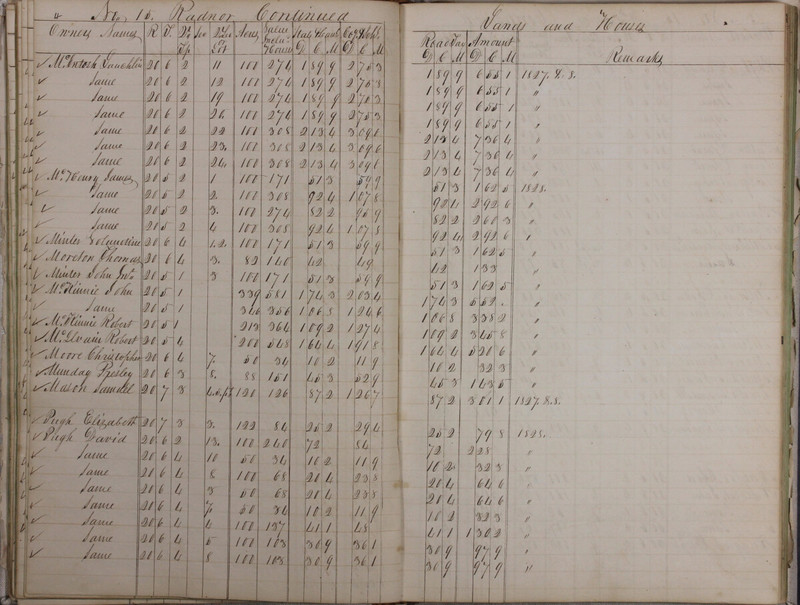 No. 15. Radnor Continued Lands and Houses
Owners Names R T Acres State & Canal Co. & School Road Tax Amount Remarks
D C M D C M D C M D C M
McIntosh Loughlin 20 6 2 11 100 274 1 89 9 2 75 3 1 89 9 6 55 1 1827. 8.
Same 20 6 2 12 100 274 1 89 9 2 75 3 1 89 9 6 55 1 "
Same 20 6 2 19 100 274 1 89 9 2 75 3 1 89 9 6 55 1 "
Same 20 6 2 100 274 1 89 9 2 75 3 1 89 9 6 55 1 "
Same 20 6 2 22 100 308 2 13 4 3 09 6 2 13 4 7 36 4 "
Same 20 6 2 23. 100 308 2 13 4 3 09 6 2 13 4 7 36 4 "
Same 20 6 2 24 100 308 2 13 4 3 09 6 2 13 4 7 36 4 "
McHenry James 20 5 2 1 100 171 51 3 59 9 51 3 1 62 5 1828.
Same 20 5 2 2. 100 308 92 4 1 07 8 92 4 2 92 6 "
Same 20 5 2 3. 100 274 82 2 95 9 82 2 2 60 3 "
Same 20 5 2 4 100 308 92 4 1 07 8 92 4 2 92 6 "
Minter 20 6 4 1.2. 100 171 51 3 59 9 51 3 1 62 5 "
Moreton Thomas 20 6 4 3. 82 140 42 49 42 1 33 "
Minter John 20 5 1 3 100 171 51 3 59 9 51 3 1 62 5 "
McKinnie John 20 5 1 339 581 1 74 3 2 03 4 1 74 3 5 52 "
Same 20 5 1 346 356 1 06 8 1 24 6 1 06 8 3 38 2 "
McKinnie Robert 20 5 1 213 364 1 09 2 1 27 4 1 09 2 3 45 8 "
McElvain Robert 20 5 4 200 548 1 64 4 1 91 8 1 64 4 5 20 6 "
Moore Christopher 20 6 4 7. 50 34 10 2 11 9 10 2 32 3 "
Munday Presley 20 6 3 8. 88 151 45 3 52 9 45 3 1 43 5 "
Mason Samuel 20 7 3 120 126 87 2 1 26 7 87 2 3 01 1 1827. 8.
Pugh Elizabeth 20 7 3 3. 122 84 25 2 29 4 25 2 79 8 1828.
Pugh David 20 6 2 13. 100 240 72 84 72 2 28 "
Same 20 6 4 10 50 34 10 2 11 9 10 2 32 3 "
Same 20 6 4 8 100 68 20 4 23 8 20 4 64 6 "
Same 20 6 4 50 68 20 4 23 8 20 4 64 6 "
Same 20 6 4 7. 50 34 10 2 11 9 10 2 32 3 "
Same 20 6 4 4 100 137 41 1 48 41 1 1 30 2 "
Same 20 6 4 5 100 103 30 9 36 1 30 9 97 9 "
Same 20 6 4 8 100 103 30 9 36 1 30 9 97 9 "